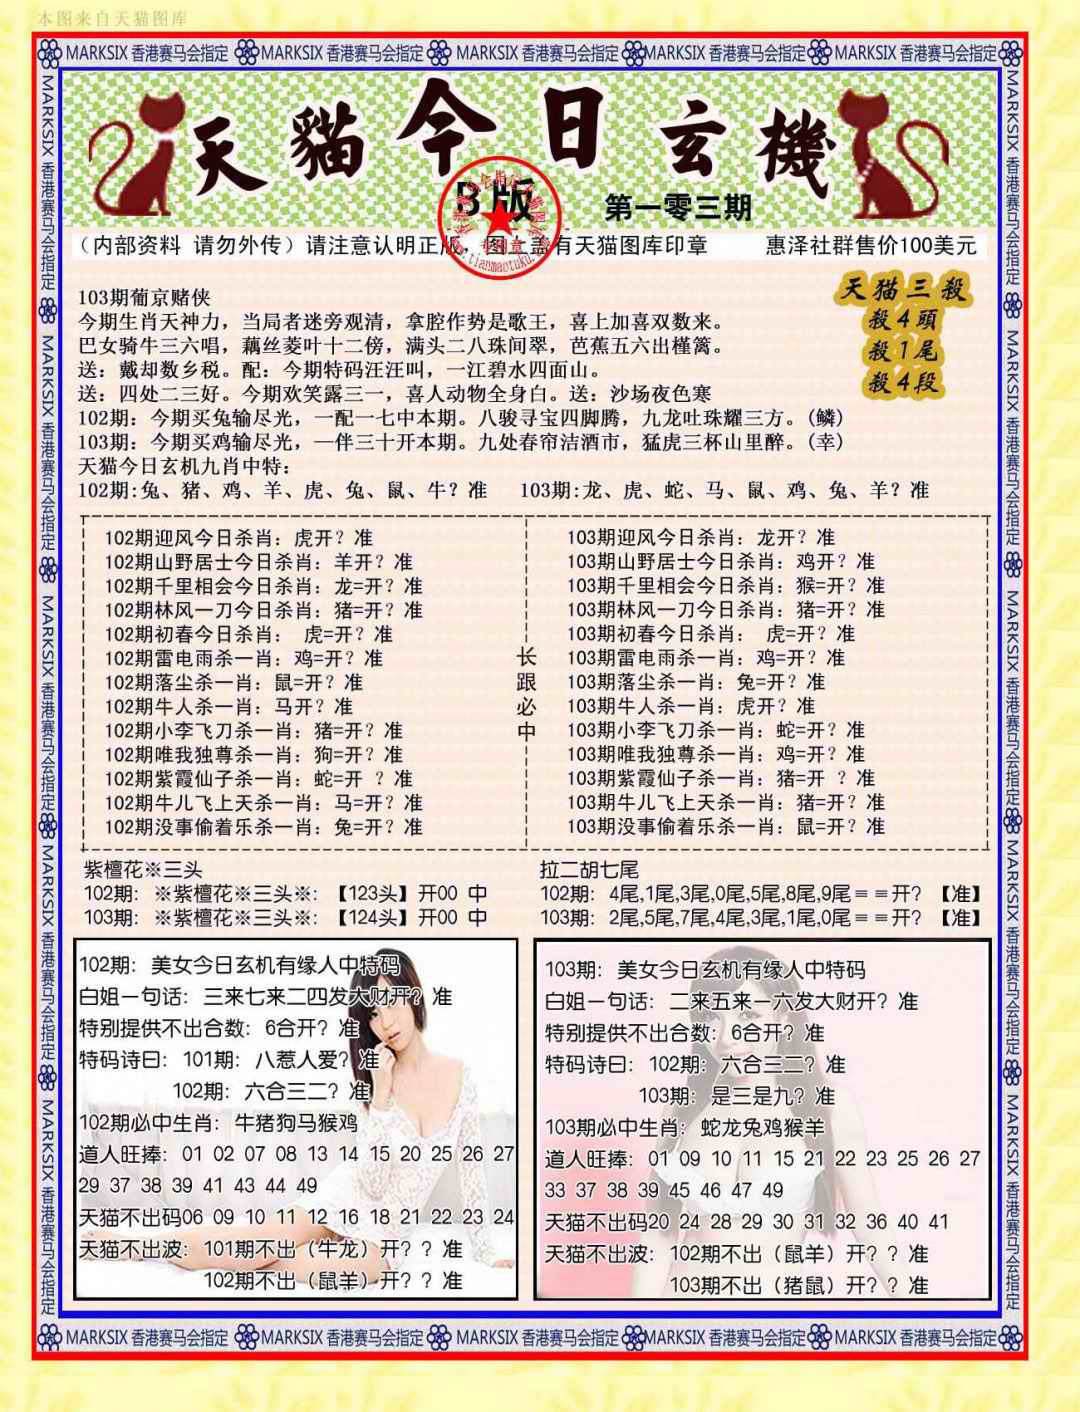 本图来自天猫图库
MARKSIX 香港赛马会指定 MARKSIX 香港赛马会指定 MARKSIX 香港赛马会指定 MARKSIX 香港赛马会指定 MARKSIX 香港赛马会指定
天貓今日玄機
B版
第一零三期
（内部资料 请勿外传）请注意认明正版，图上盖有天猫图库印章 惠泽社群售价100美元
天猫三殺
殺4頭
殺1尾
殺4段
103期葡京赌侠
今期生肖天神力，当局者迷旁观清，拿腔作势是歌王，喜上加喜双数来。
巴女骑牛三六唱，藕丝菱叶十二傍，满头二八珠间翠，芭蕉五六出槿篱。
送：戴却数乡税。配：今期特码汪汪叫，一江碧水四面山。
送：四处二三好。今期欢笑露三一，喜人动物全身白。送：沙场夜色寒
102期：今期买兔输尽光，一配一七中本期。八骏寻宝四脚腾，九龙吐珠耀三方。(鳞)
103期：今期买鸡输尽光，一伴三十开本期。九处春帘洁酒市，猛虎三杯山里醉。(幸)
天猫今日玄机九肖中特：
102期:兔、猪、鸡、羊、虎、兔、鼠、牛？准 103期:龙、虎、蛇、马、鼠、鸡、兔、羊？准
102期迎风今日杀肖：虎开？准
102期山野居士今日杀肖：羊开？准
102期千里相会今日杀肖：龙=开？准
102期林风一刀今日杀肖：猪=开？准
102期初春今日杀肖： 虎=开？准
102期雷电雨杀一肖：鸡=开？准
102期落尘杀一肖：鼠=开？准
102期牛人杀一肖：马开？准
102期小李飞刀杀一肖：猪=开？准
102期唯我独尊杀一肖：狗=开？准
102期紫霞仙子杀一肖：蛇=开 ？准
102期牛儿飞上天杀一肖：马=开？准
102期没事偷着乐杀一肖：兔=开？准
长跟必中
103期迎风今日杀肖：龙开？准
103期山野居士今日杀肖：鸡开？准
103期千里相会今日杀肖：猴=开？准
103期林风一刀今日杀肖：猪=开？准
103期初春今日杀肖： 虎=开？准
103期雷电雨杀一肖：鸡=开？准
103期落尘杀一肖：兔=开？准
103期牛人杀一肖：虎开？准
103期小李飞刀杀一肖：蛇=开？准
103期唯我独尊杀一肖：鸡=开？准
103期紫霞仙子杀一肖：猪=开 ？准
103期牛儿飞上天杀一肖：猪=开？准
103期没事偷着乐杀一肖：鼠=开？准
紫檀花※三头
102期：※紫檀花※三头※：【123头】开00 中
103期：※紫檀花※三头※：【124头】开00 中
拉二胡七尾
102期：4尾,1尾,3尾,0尾,5尾,8尾,9尾＝＝开？【准】
103期：2尾,5尾,7尾,4尾,3尾,1尾,0尾＝＝开？【准】
102期：美女今日玄机有缘人中特码
白姐一句话：三来七来二四发大财开？准
特别提供不出合数：6合开？准
特码诗曰：101期：八惹人爱？准
102期：六合三二？准
102期必中生肖：牛猪狗马猴鸡
道人旺捧：01 02 07 08 13 14 15 20 25 26 27
29 37 38 39 41 43 44 49
天猫不出码06 09 10 11 12 16 18 21 22 23 24
天猫不出波：101期不出（牛龙）开？？准
102期不出（鼠羊）开？？准
103期：美女今日玄机有缘人中特码
白姐一句话：二来五来一六发大财开？准
特别提供不出合数：6合开？准
特码诗曰：102期：六合三二？准
103期：是三是九？准
103期必中生肖：蛇龙兔鸡猴羊
道人旺捧：01 09 10 11 15 21 22 23 25 26 27
33 37 38 39 45 46 47 49
天猫不出码20 24 28 29 30 31 32 36 40 41
天猫不出波：102期不出（鼠羊）开？？准
103期不出（猪鼠）开？？准
MARKSIX 香港赛马会指定 MARKSIX 香港赛马会指定 MARKSIX 香港赛马会指定 MARKSIX 香港赛马会指定 MARKSIX 香港赛马会指定
MARKSIX 香港赛马会指定 MARKSIX 香港赛马会指定 MARKSIX 香港赛马会指定 MARKSIX 香港赛马会指定 MARKSIX 香港赛马会指定
MARKSIX 香港赛马会指定 MARKSIX 香港赛马会指定 MARKSIX 香港赛马会指定 MARKSIX 香港赛马会指定 MARKSIX 香港赛马会指定